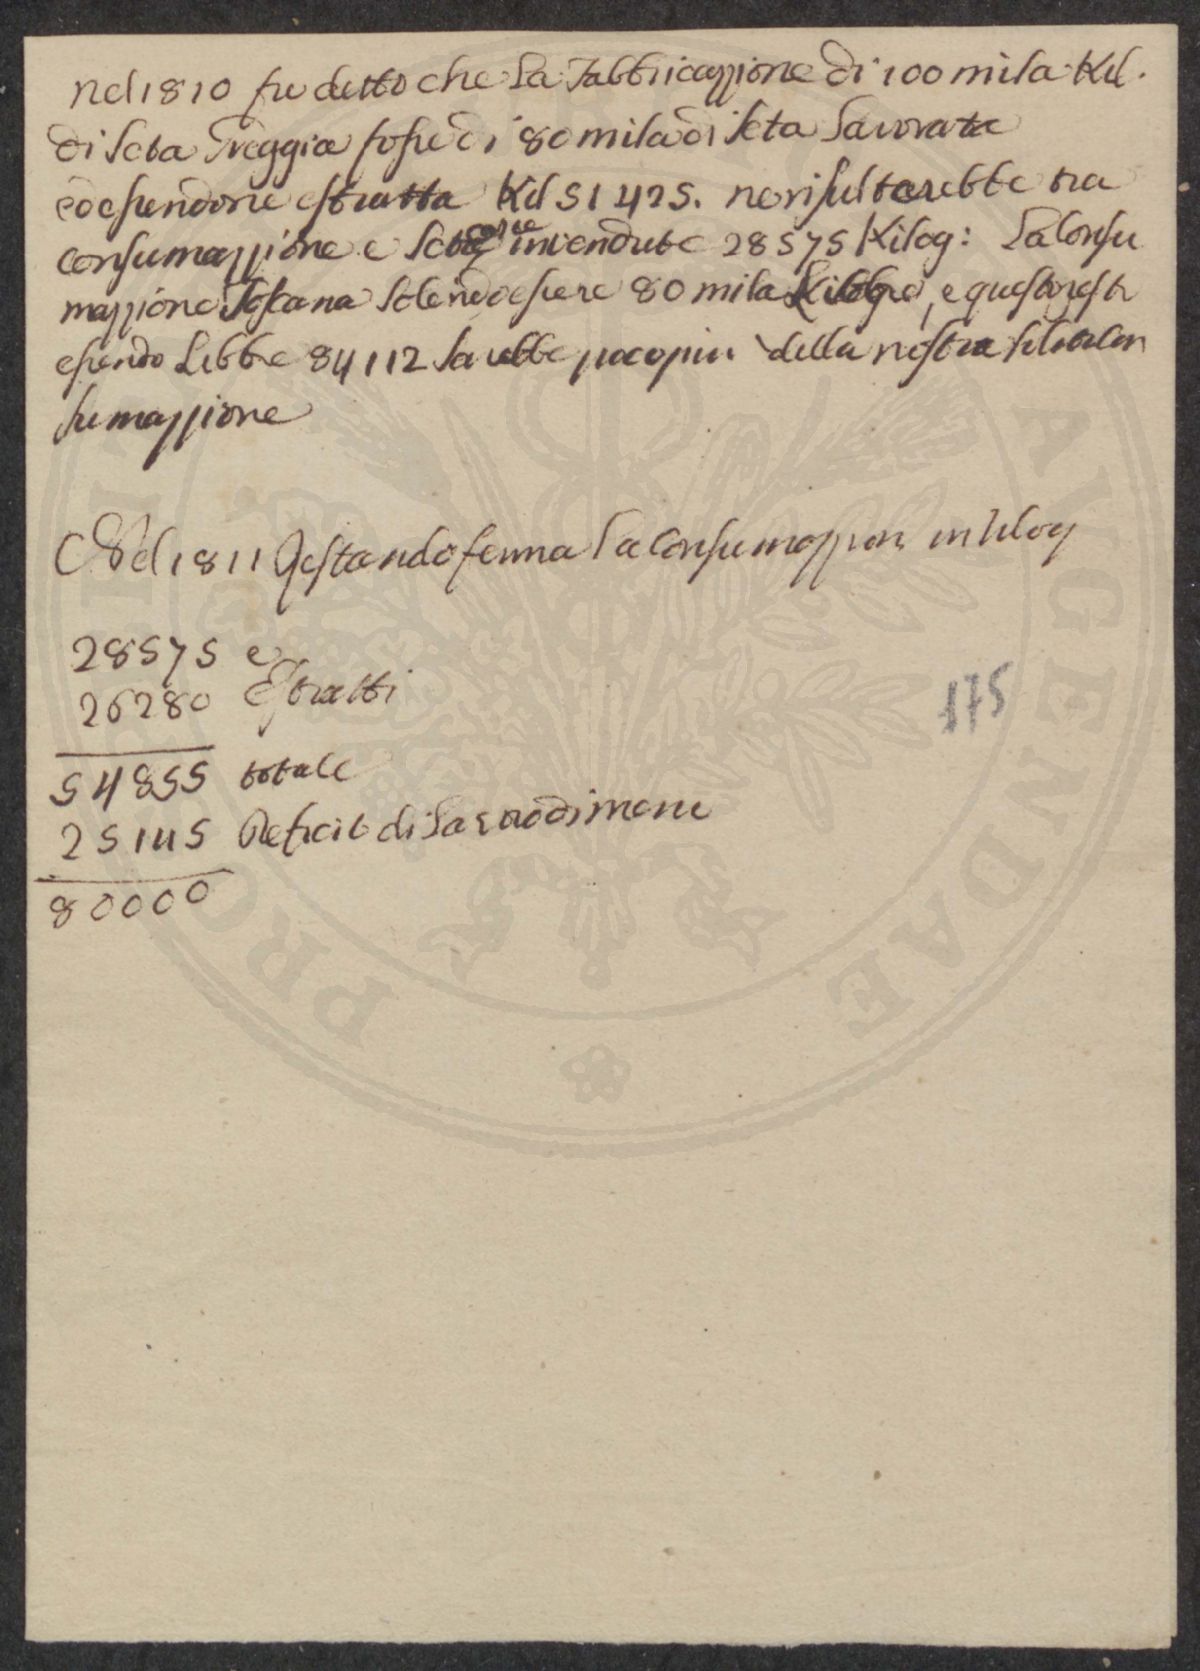 nel 1810 fu detto che la Fabbricazzione di 100 mila Kil.
di Seta Greggia fosse di 80 mila di Seta lavorata
ed essendone estratta Kil 51425. ne risulterebbe tra
consumazzione e Seta invendute 28575 Kilog: La Consu
mazzione Toscana solendo essere 80 mila Libbre, e questo resto
essendo Libbre 84112 sarebbe poco piu della nostra solita con
sumazzione
Nel 1811 Restando ferma la Consumazzion in kilog
28575 e
26280 Estratti
54855 totale
25145 Deficit di lavoro di meno
80000
175
PRO AUGENDAE